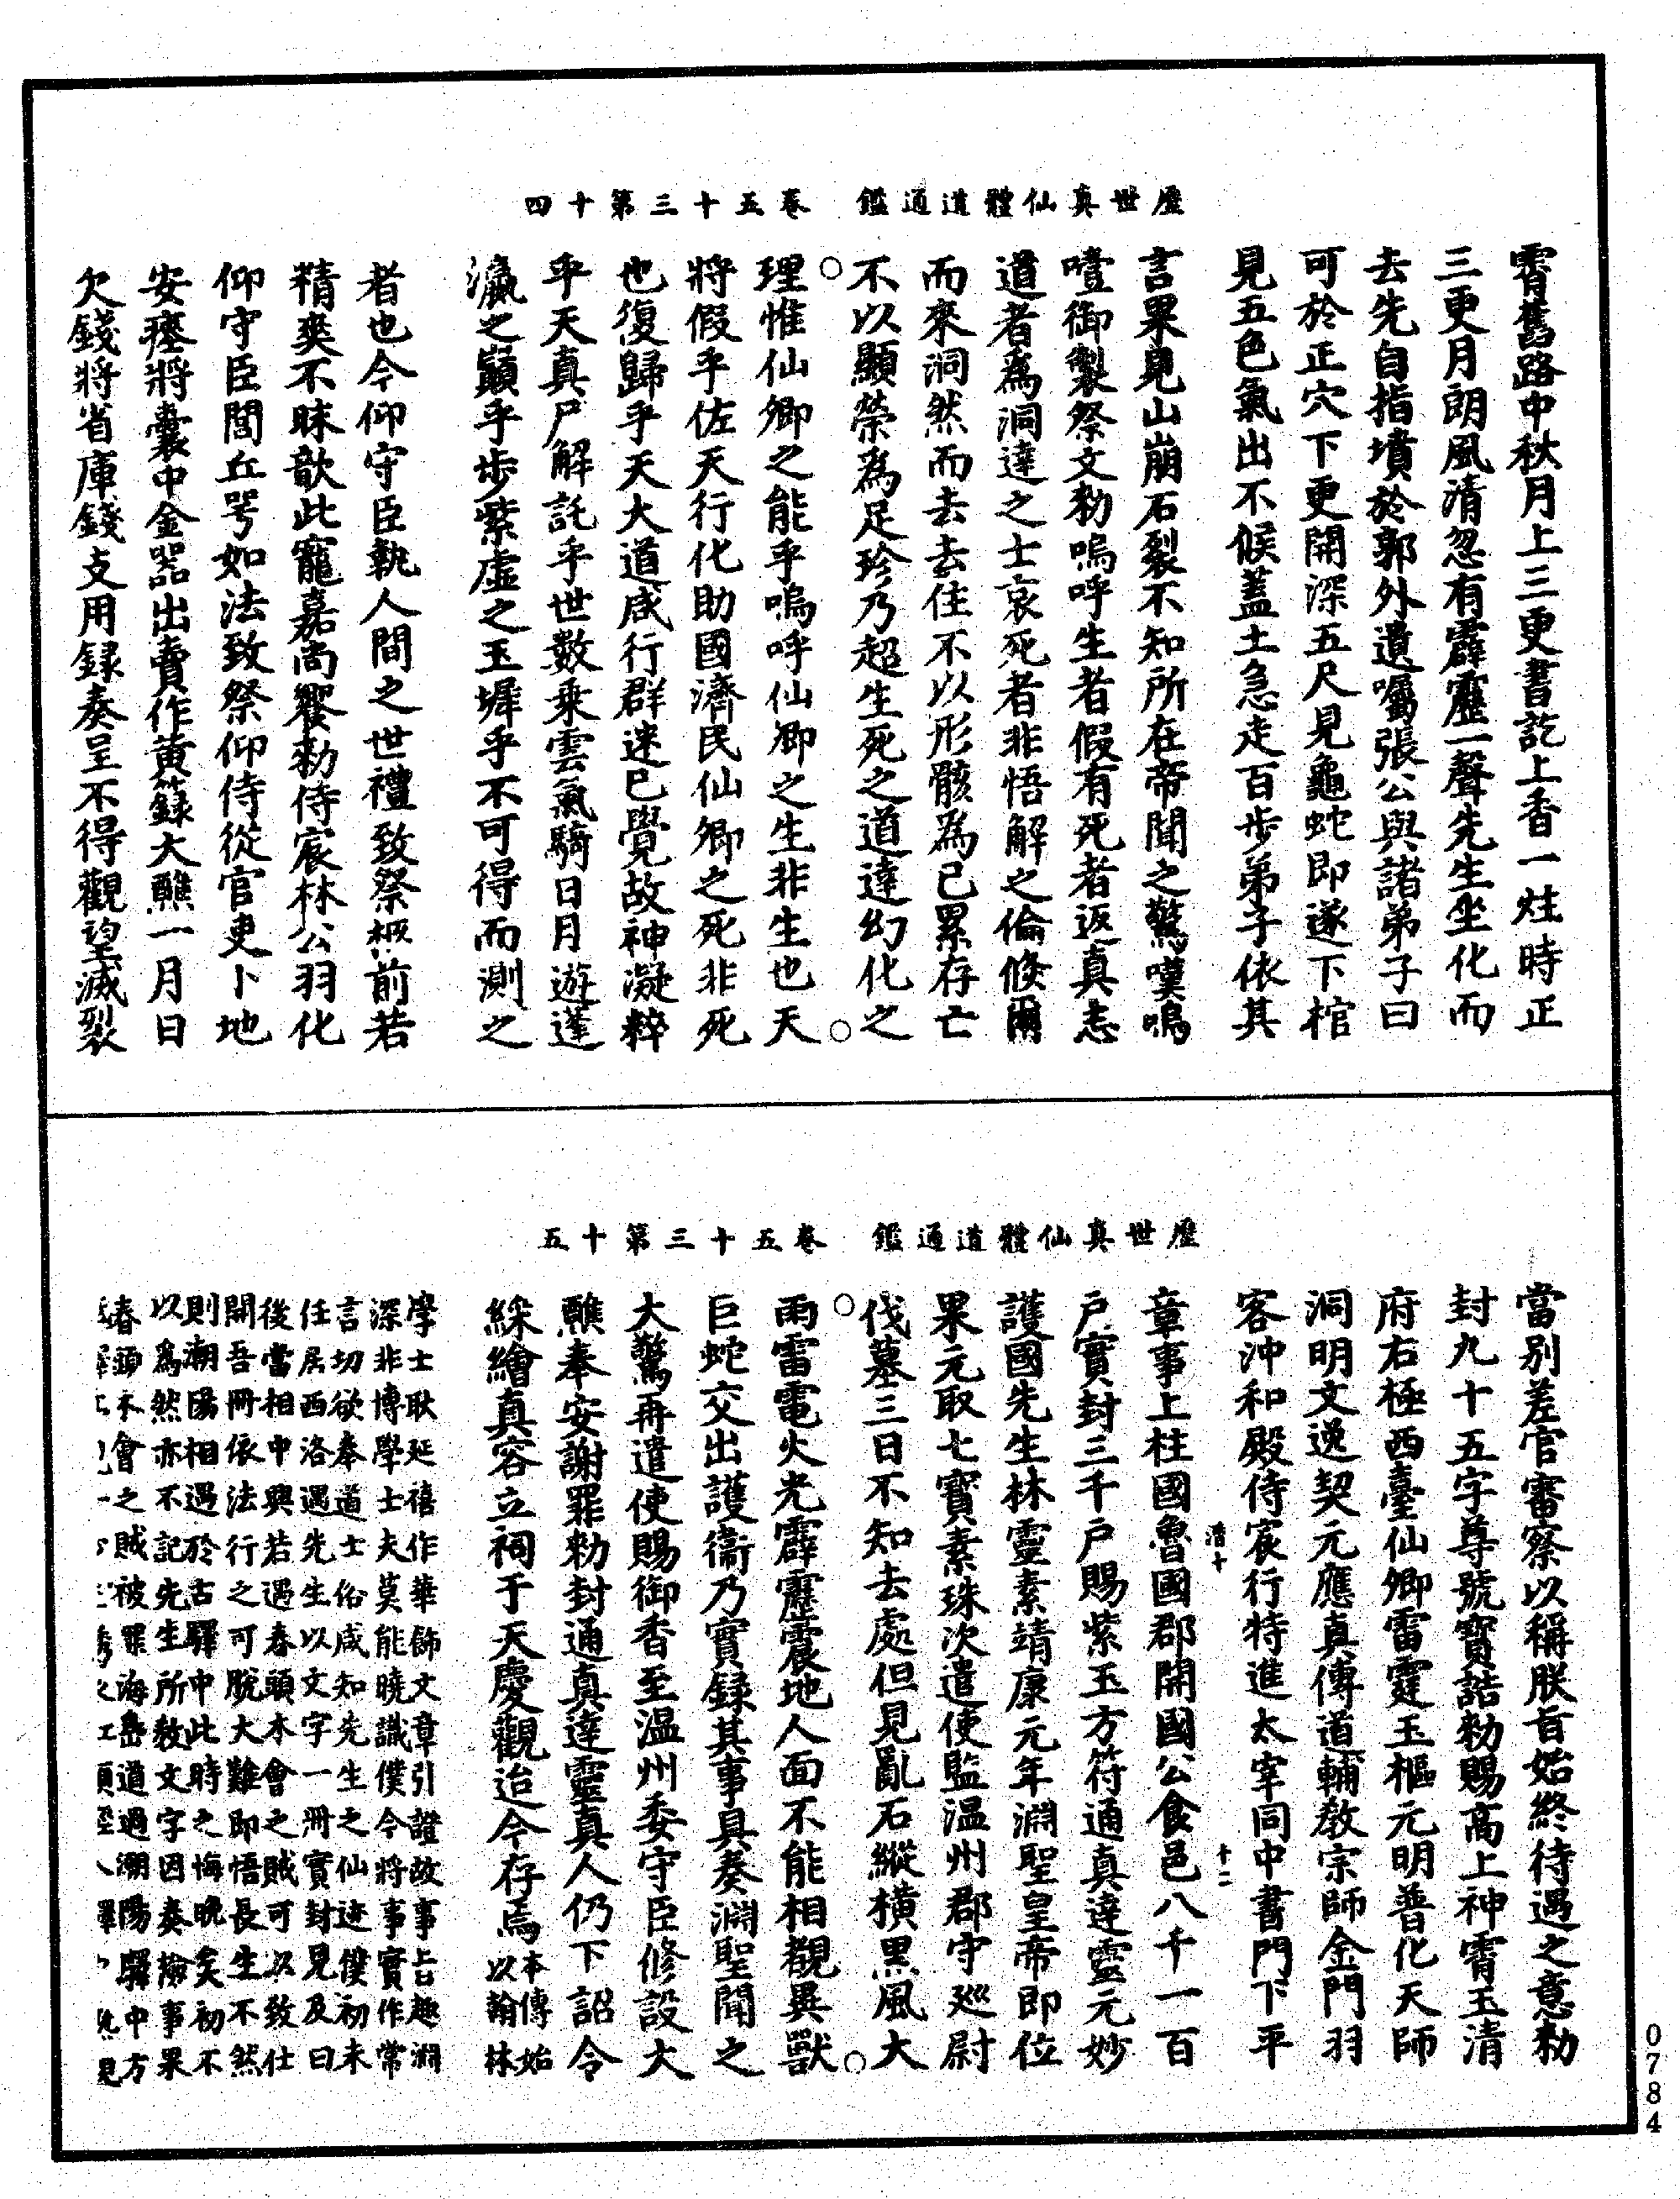 歷世真仙體道通鑑　卷五十三第十四
霄舊路中秋月上三更書訖上香一炷時正
三更月朗風清忽有霹靂一聲先生坐化而
去先自指墳於郭外遺囑張公與諸弟子曰
可於正穴下更開深五尺見龜蛇即遂下棺
見五色氣出不候蓋土急走百步弟子依其
言果見山崩石裂不知所在帝聞之驚嘆嗚
噎御製祭文勑嗚呼生者假有死者返真志
道者為洞達之士哀死者非悟解之倫倏爾
而來洞然而去去住不以形骸為己累存亡
不以顯榮為足珍乃超生死之道達幻化之
理惟仙卿之能乎嗚呼仙卿之生非生也天
將假乎佐天行化助國濟民仙卿之死非死
也復歸乎天大道咸行群迷已覺故神凝粹
乎天真尸解託乎世數乘雲氣騎日月遊蓬
瀛之巔乎步紫虛之玉墀乎不可得而測之
者也今仰守臣執人間之世禮致祭柩前若
精爽不昧歆此寵嘉尚饗勑侍宸林公羽化
仰守臣閭丘咢如法致祭仰侍從官吏卜地
安瘞將囊中金器出賣作黃籙大醮一月日
欠錢將省庫錢支用録奏呈不得觀望滅裂
歷世真仙體道通鑑　卷五十三第十五
當別差官審察以稱朕旨始終待遇之意勑
封九十五字尊號寶誥勑賜高上神霄玉清
府右極西臺仙卿雷霆玉樞元明普化天師
洞明文逸契元應真傳道輔教宗師金門羽
客沖和殿侍宸行特進太宰同中書門下平
章事上柱國魯國郡開國公食邑八千一百
戶實封三千戶賜紫玉方符通真達靈元妙
護國先生林靈素靖康元年淵聖皇帝即位
果元取七寶素珠次遣使監溫州郡守巡尉
伐墓三日不知去處但見亂石縱橫黑風大
雨雷電火光霹靂震地人面不能相覩異獸
巨蛇交出護衛乃實録其事具奏淵聖聞之
大驚再遣使賜御香至溫州委守臣修設大
醮奉安謝罪勑封通真達靈真人仍下詔令
綵繪真容立祠于天慶觀迨今存焉本傳始
以翰林
學士耿延禧作華飾文章引證故事旨趣淵
深非博學士夫莫能曉識僕今將事實作常
言切欲奉道士俗咸知先生之仙迹僕初未
任居西洛遇先生以文字一冊實封見及曰
後當相中興若遇春頭木會之賊可以致仕
開吾冊依法行之可脫大難即悟長生不然
則潮陽相遇於古驛中此時之悔晚矣初不
以為然亦不記先生所教文字因奏檢事果
春頭木會之賊被罪海島道過潮陽驛中方
清十
十二
0784